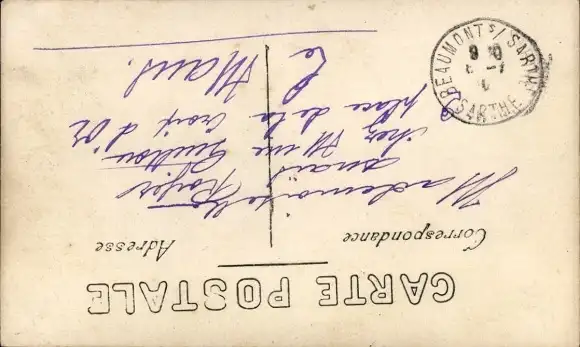 CARTE POSTALE
Correspondance
Adresse
Mademoiselle
Anaïs
chez Mme
place de la Croix d'Or
Le Mans.
BEAUMONT S/ SARTHE
SARTHE